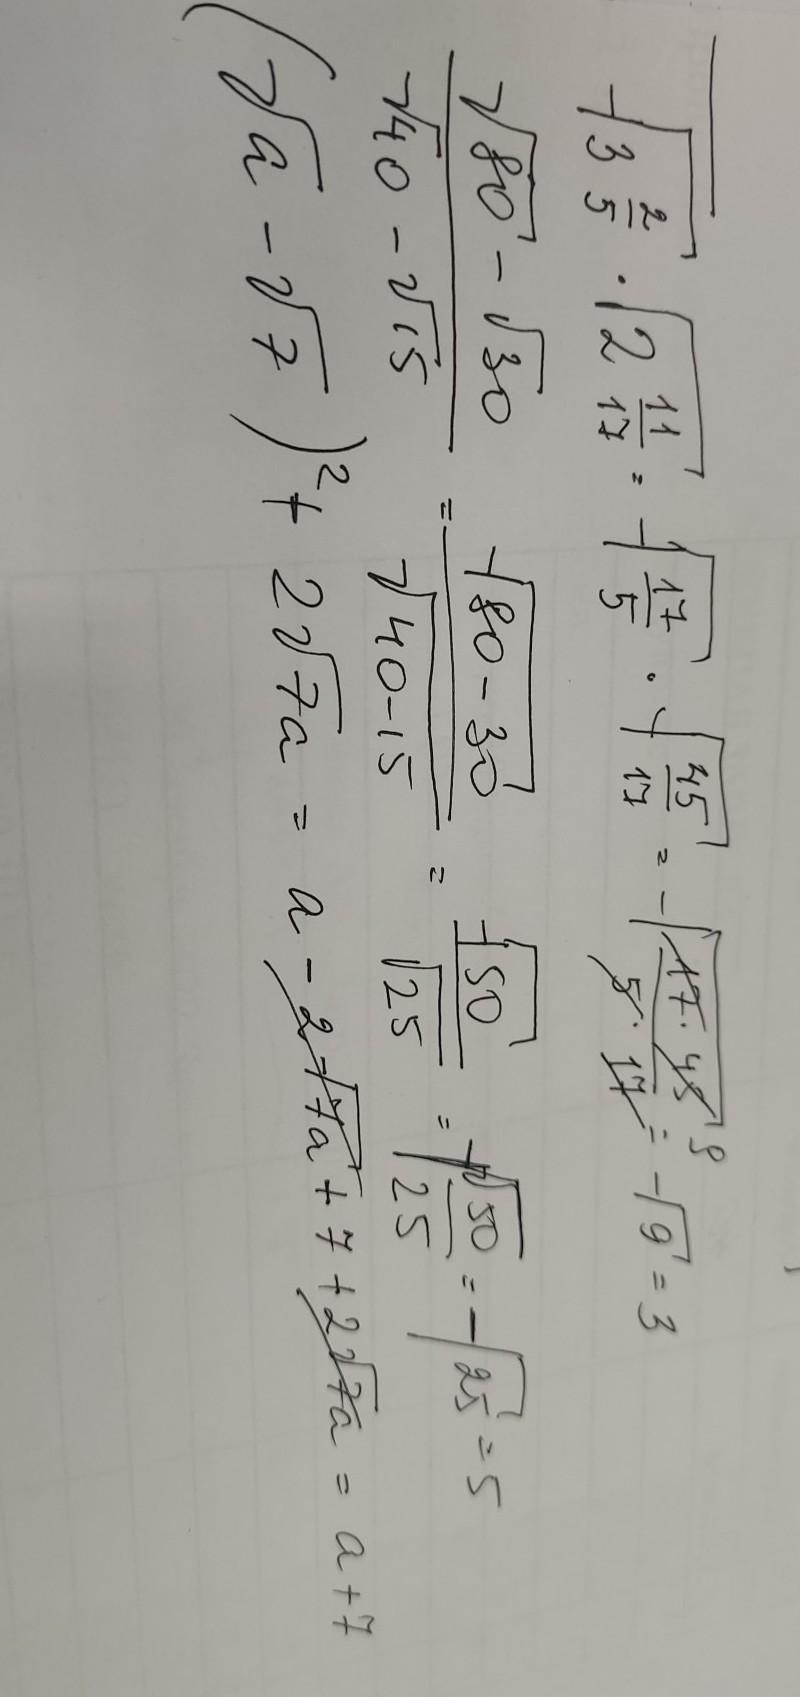 √3 2/5 · √2 11/17 = √17/5 · √45/17 = √17·45/5·17 9 = √9 = 3
√80 - √30 / √40 - √15 = √80-30 / √40-15 = √50 / √25 = √50/25 = √25 = 5
(√a - √7)² + 2√7a = a - 2√7a + 7 + 2√7a = a + 7